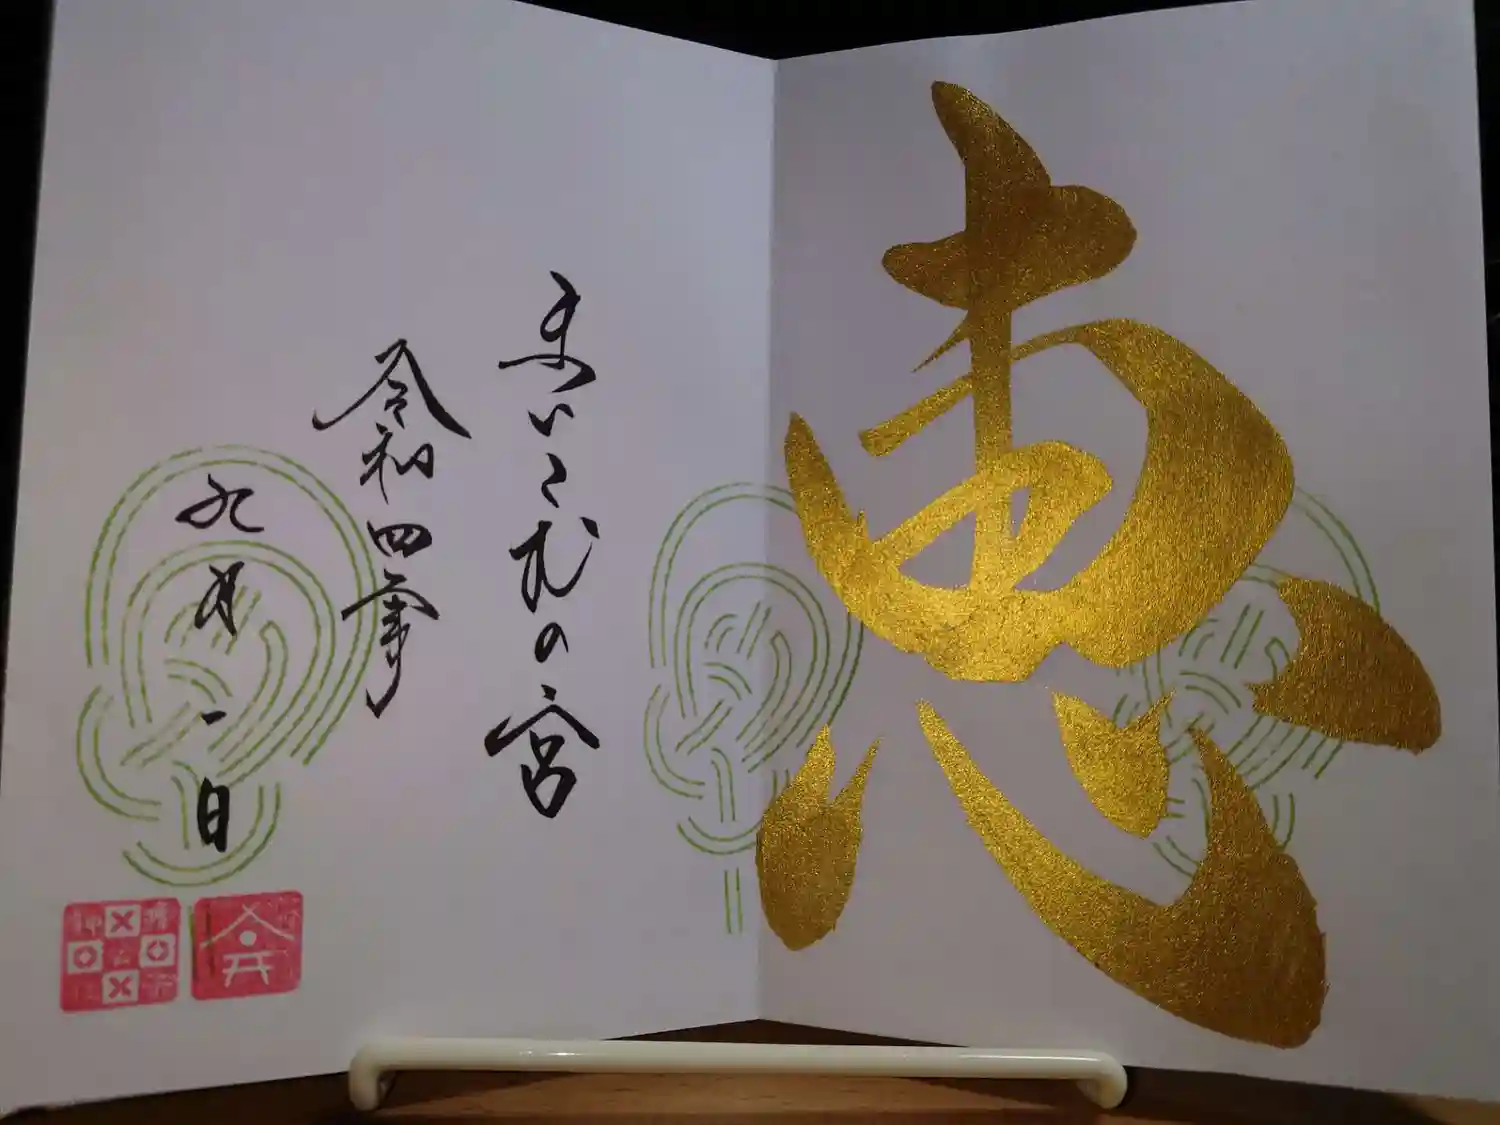 恵
まいくむの宮
令和四年
九月一日